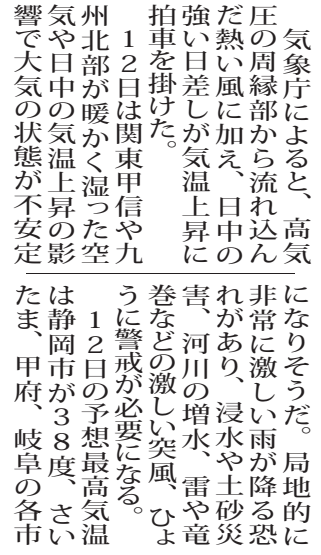 気象庁によると、高気
圧の周縁部から流れ込ん
だ熱い風に加え、日中の
強い日差しが気温上昇に
拍車を掛けた。
　１２日は関東甲信や九
州北部が暖かく湿った空
気や日中の気温上昇の影
響で大気の状態が不安定
になりそうだ。局地的に
非常に激しい雨が降る恐
れがあり、浸水や土砂災
害、河川の増水、雷や竜
巻などの激しい突風、ひょ
うに警戒が必要になる。
　１２日の予想最高気温
は静岡市が３８度、さい
たま、甲府、岐阜の各市